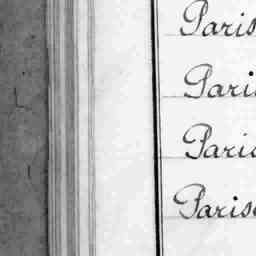 Paris
Pari
Paris
Paris